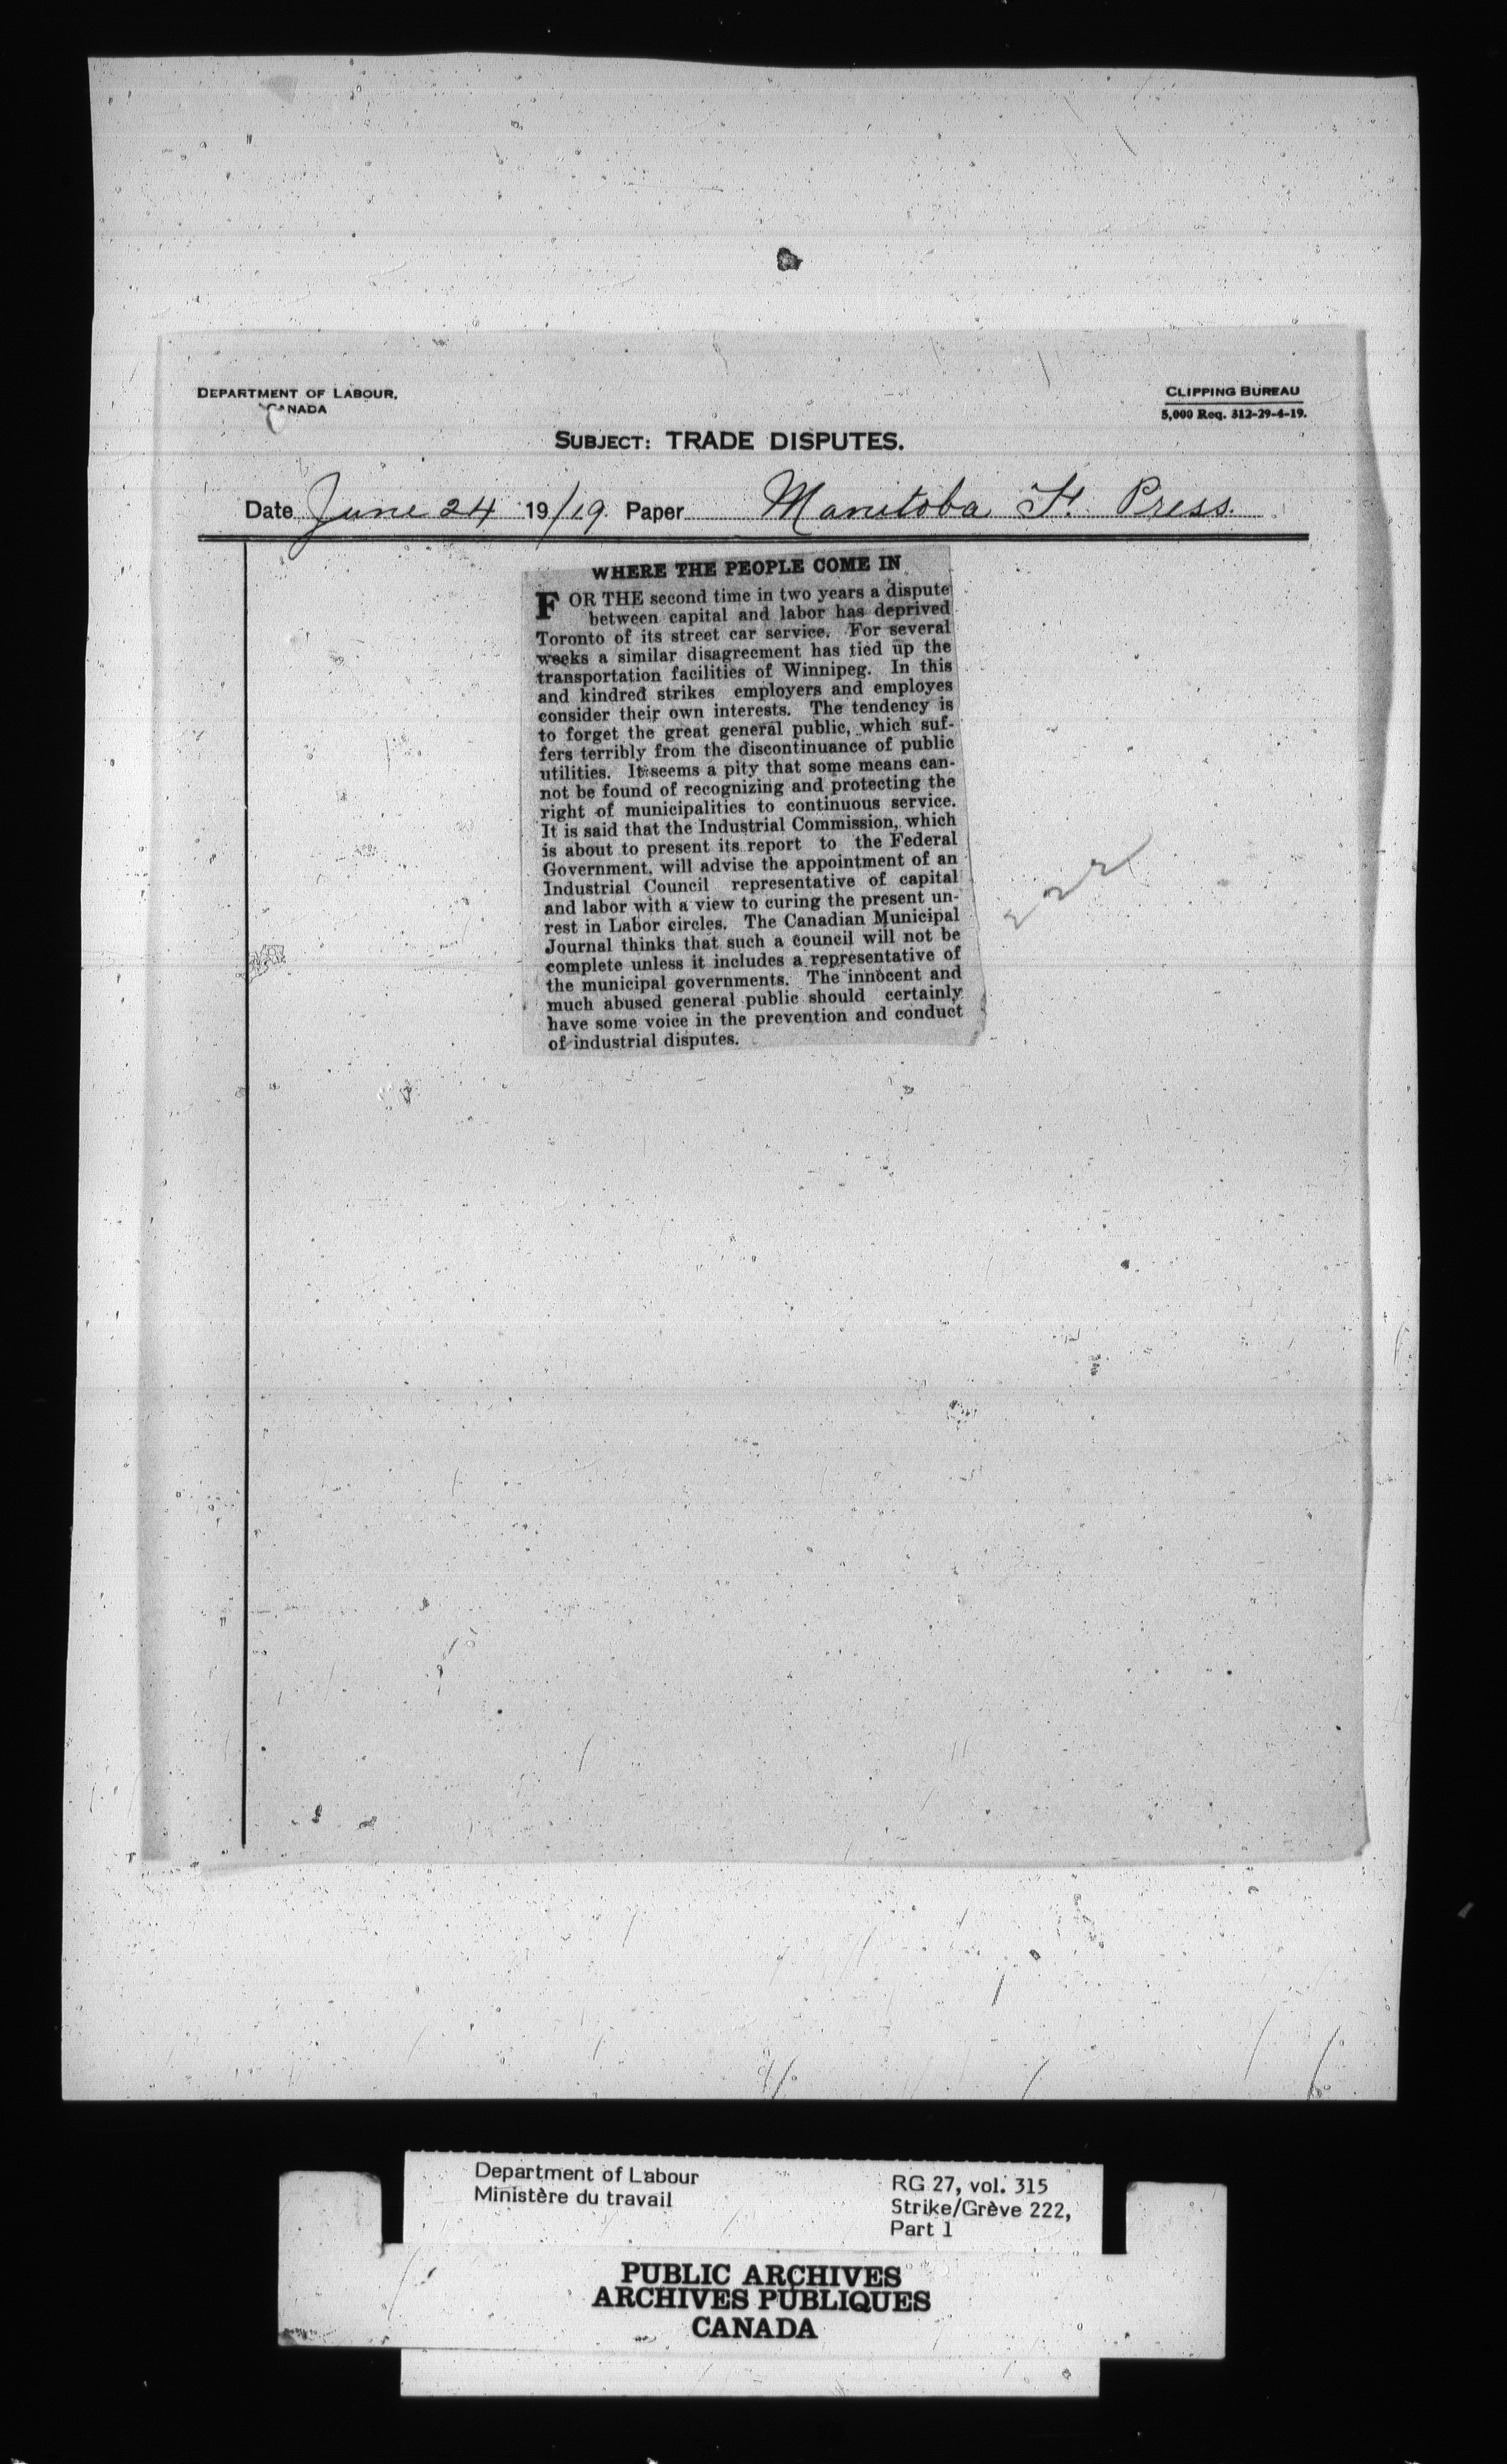 DEPARTMENT OF LABOUR,
CANADA
CLIPPING BUREAU
5,000 Req. 312-29-4-19.
SUBJECT: TRADE DISPUTES.
Date June 24 19/19. Paper Manitoba F. Press.
WHERE THE PEOPLE COME IN
FOR THE second time in two years a dispute
between capital and labor has deprived
Toronto of its street car service. For several
weeks a similar disagreement has tied up the
transportation facilities of Winnipeg. In this
and kindred strikes employers and employes
consider their own interests. The tendency is
to forget the great general public, which suf-
fers terribly from the discontinuance of public
utilities. It seems a pity that some means can-
not be found of recognizing and protecting the
right of municipalities to continuous service.
It is said that the Industrial Commission, which
is about to present its report to the Federal
Government, will advise the appointment of an
Industrial Council representative of capital
and labor with a view to curing the present un-
rest in Labor circles. The Canadian Municipal
Journal thinks that such a council will not be
complete unless it includes a representative of
the municipal governments. The innocent and
much abused general public should certainly
have some voice in the prevention and conduct
of industrial disputes.
222
Department of Labour
Ministère du travail
RG 27, vol. 315
Strike/Grève 222,
Part 1
PUBLIC ARCHIVES
ARCHIVES PUBLIQUES
CANADA